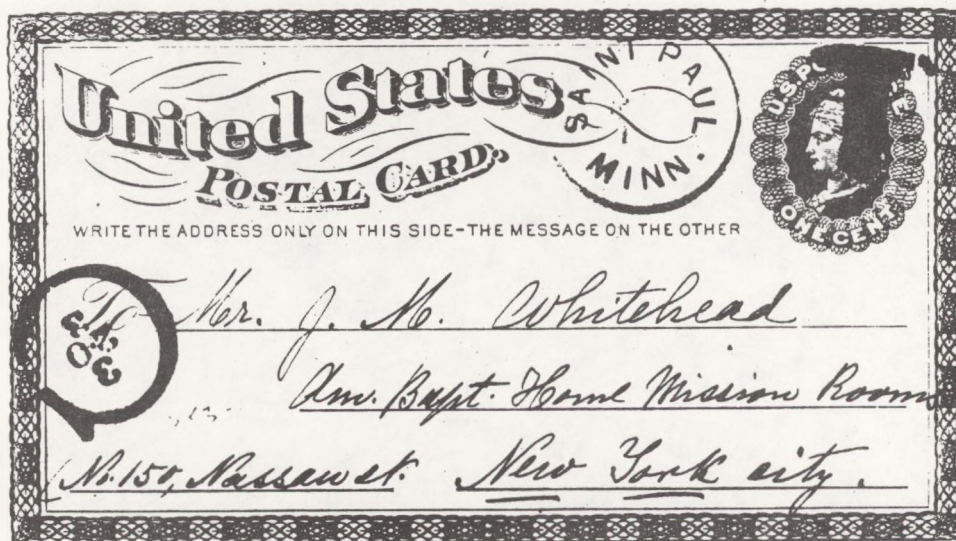 United States
POSTAL CARD,
SAINT PAUL
MINN.
ONE CENT
WRITE THE ADDRESS ONLY ON THIS SIDE-THE MESSAGE ON THE OTHER
To Mr. J. M. Whitehead
Am. Bapt. Home Mission Rooms
No. 150, Nassau st. New York city.